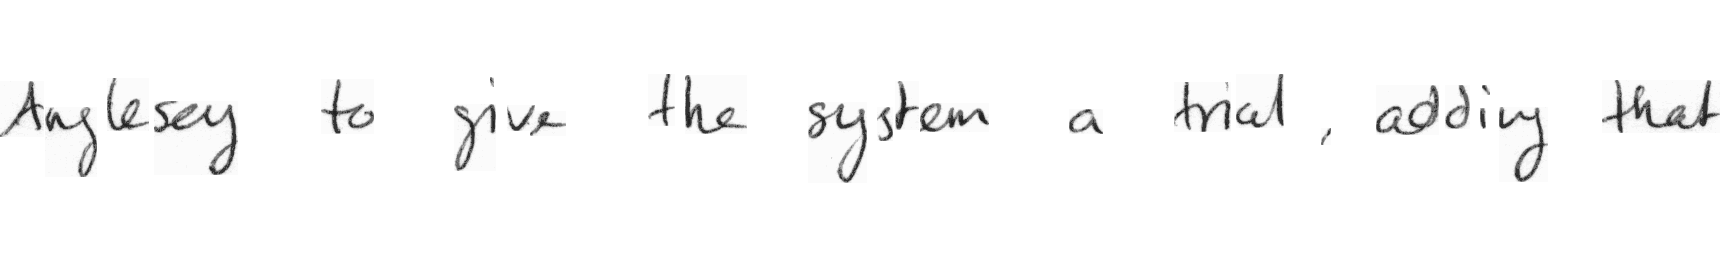 Anglesey to give the system a trial, adding that